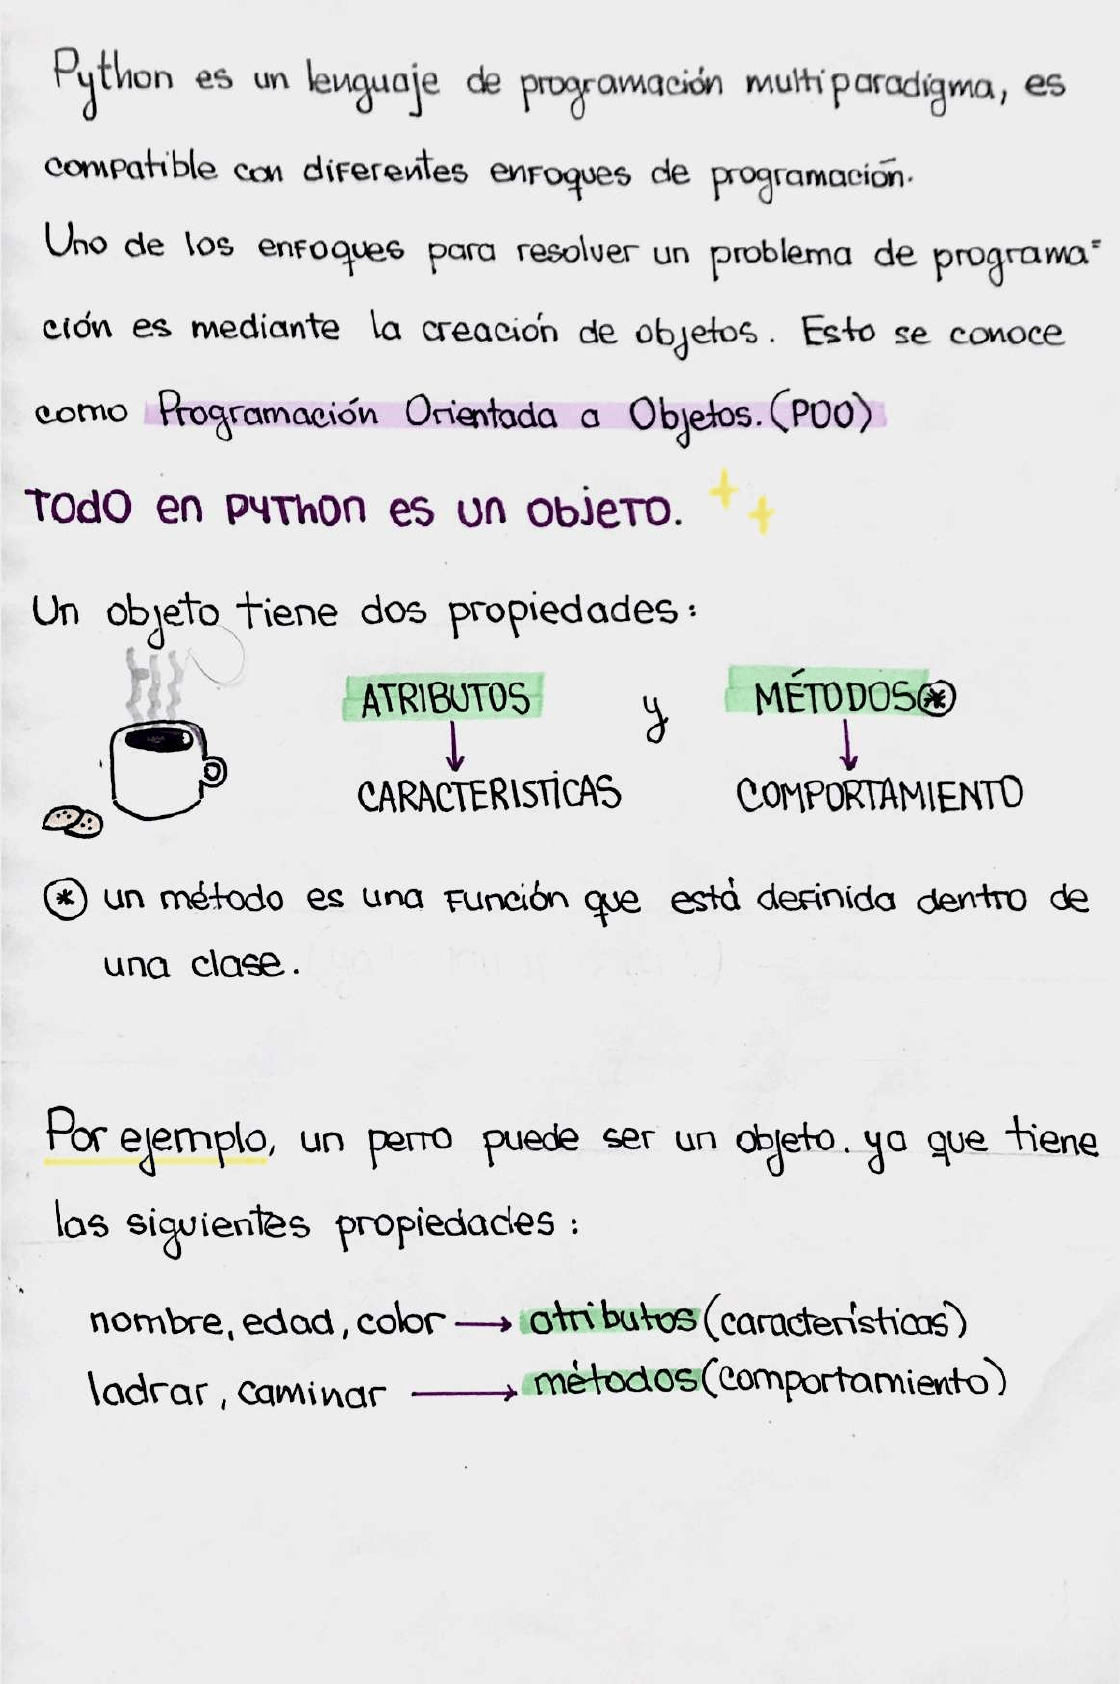 Python es un lenguaje de programación multiparadigma, es
compatible con diferentes enfoques de programación.
Uno de los enfoques para resolver un problema de programa=
ción es mediante la creación de objetos. Esto se conoce
como Programación Orientada a Objetos. (POO)
TODO en PYThON es un OBJETO.
Un objeto tiene dos propiedades:
ATRIBUTOS y MÉTODOS*
CARACTERISTICAS COMPORTAMIENTO
* un método es una función que está definida dentro de
una clase.
Por ejemplo, un perro puede ser un objeto. ya que tiene
las siguientes propiedades:
nombre, edad, color → atributos (características)
ladrar, caminar → métodos (comportamiento)